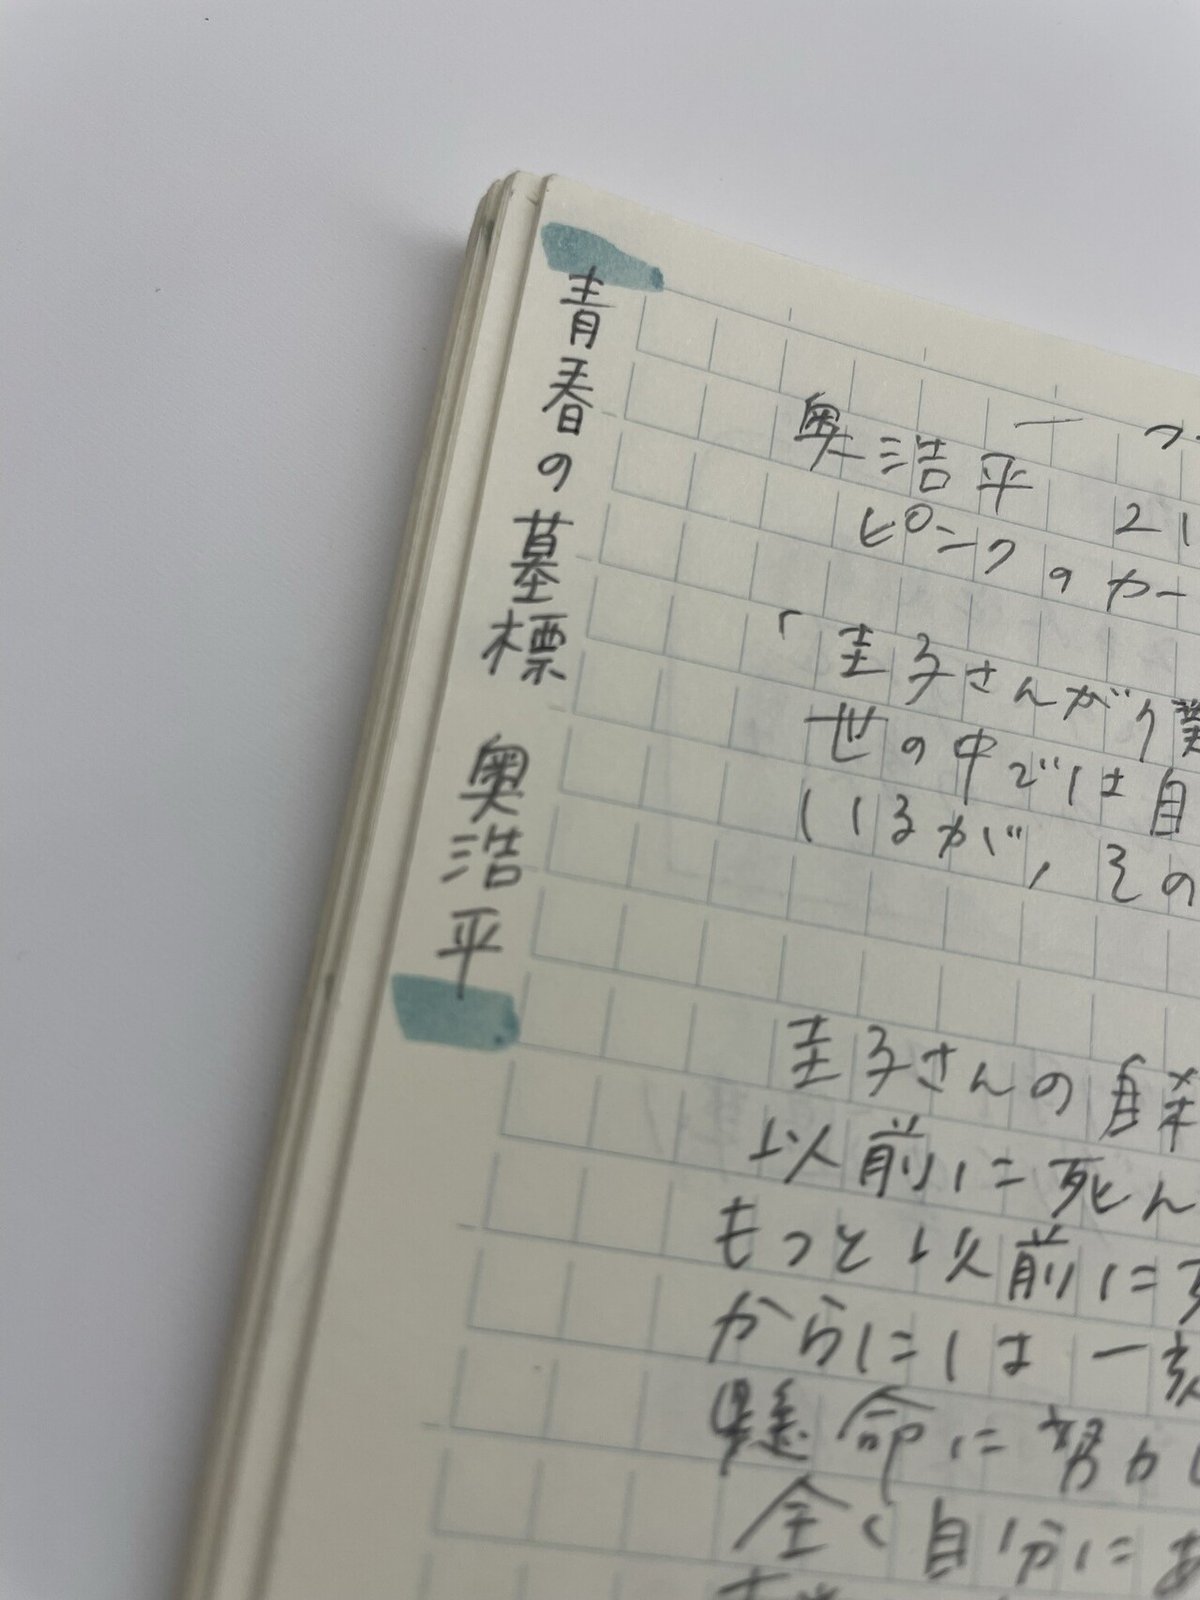 青春の墓標 奥浩平
奥浩平 21
ピンクのカー
「圭子さんが僕
世の中では自
いるが，その
圭子さんの自殺
以前に死ん
もっと以前に
からには一刻
懸命に努力し
全く自分にあ